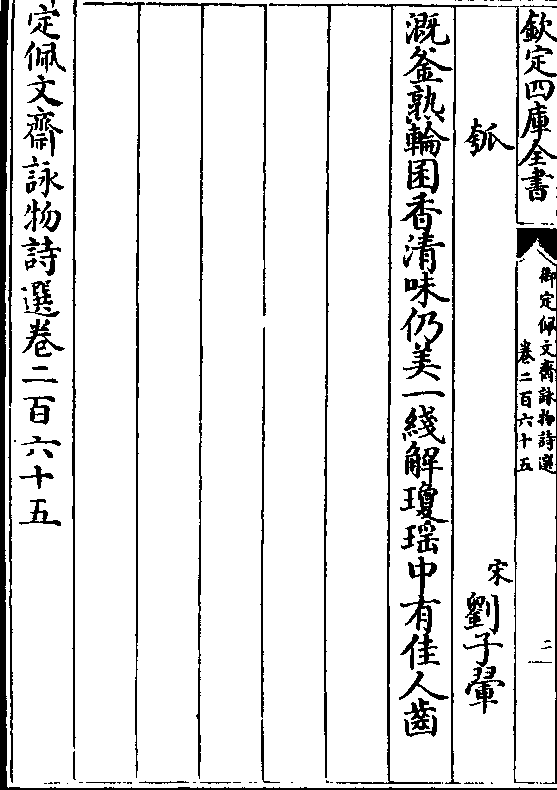 欽定四庫全書
御定佩文齋詠物詩選
卷二百六十五
二
瓠
宋
劉子翬
溉釜熟輪囷香清味仍美一綫解瓊瑶中有佳人齒
定佩文齋詠物詩選卷二百六十五